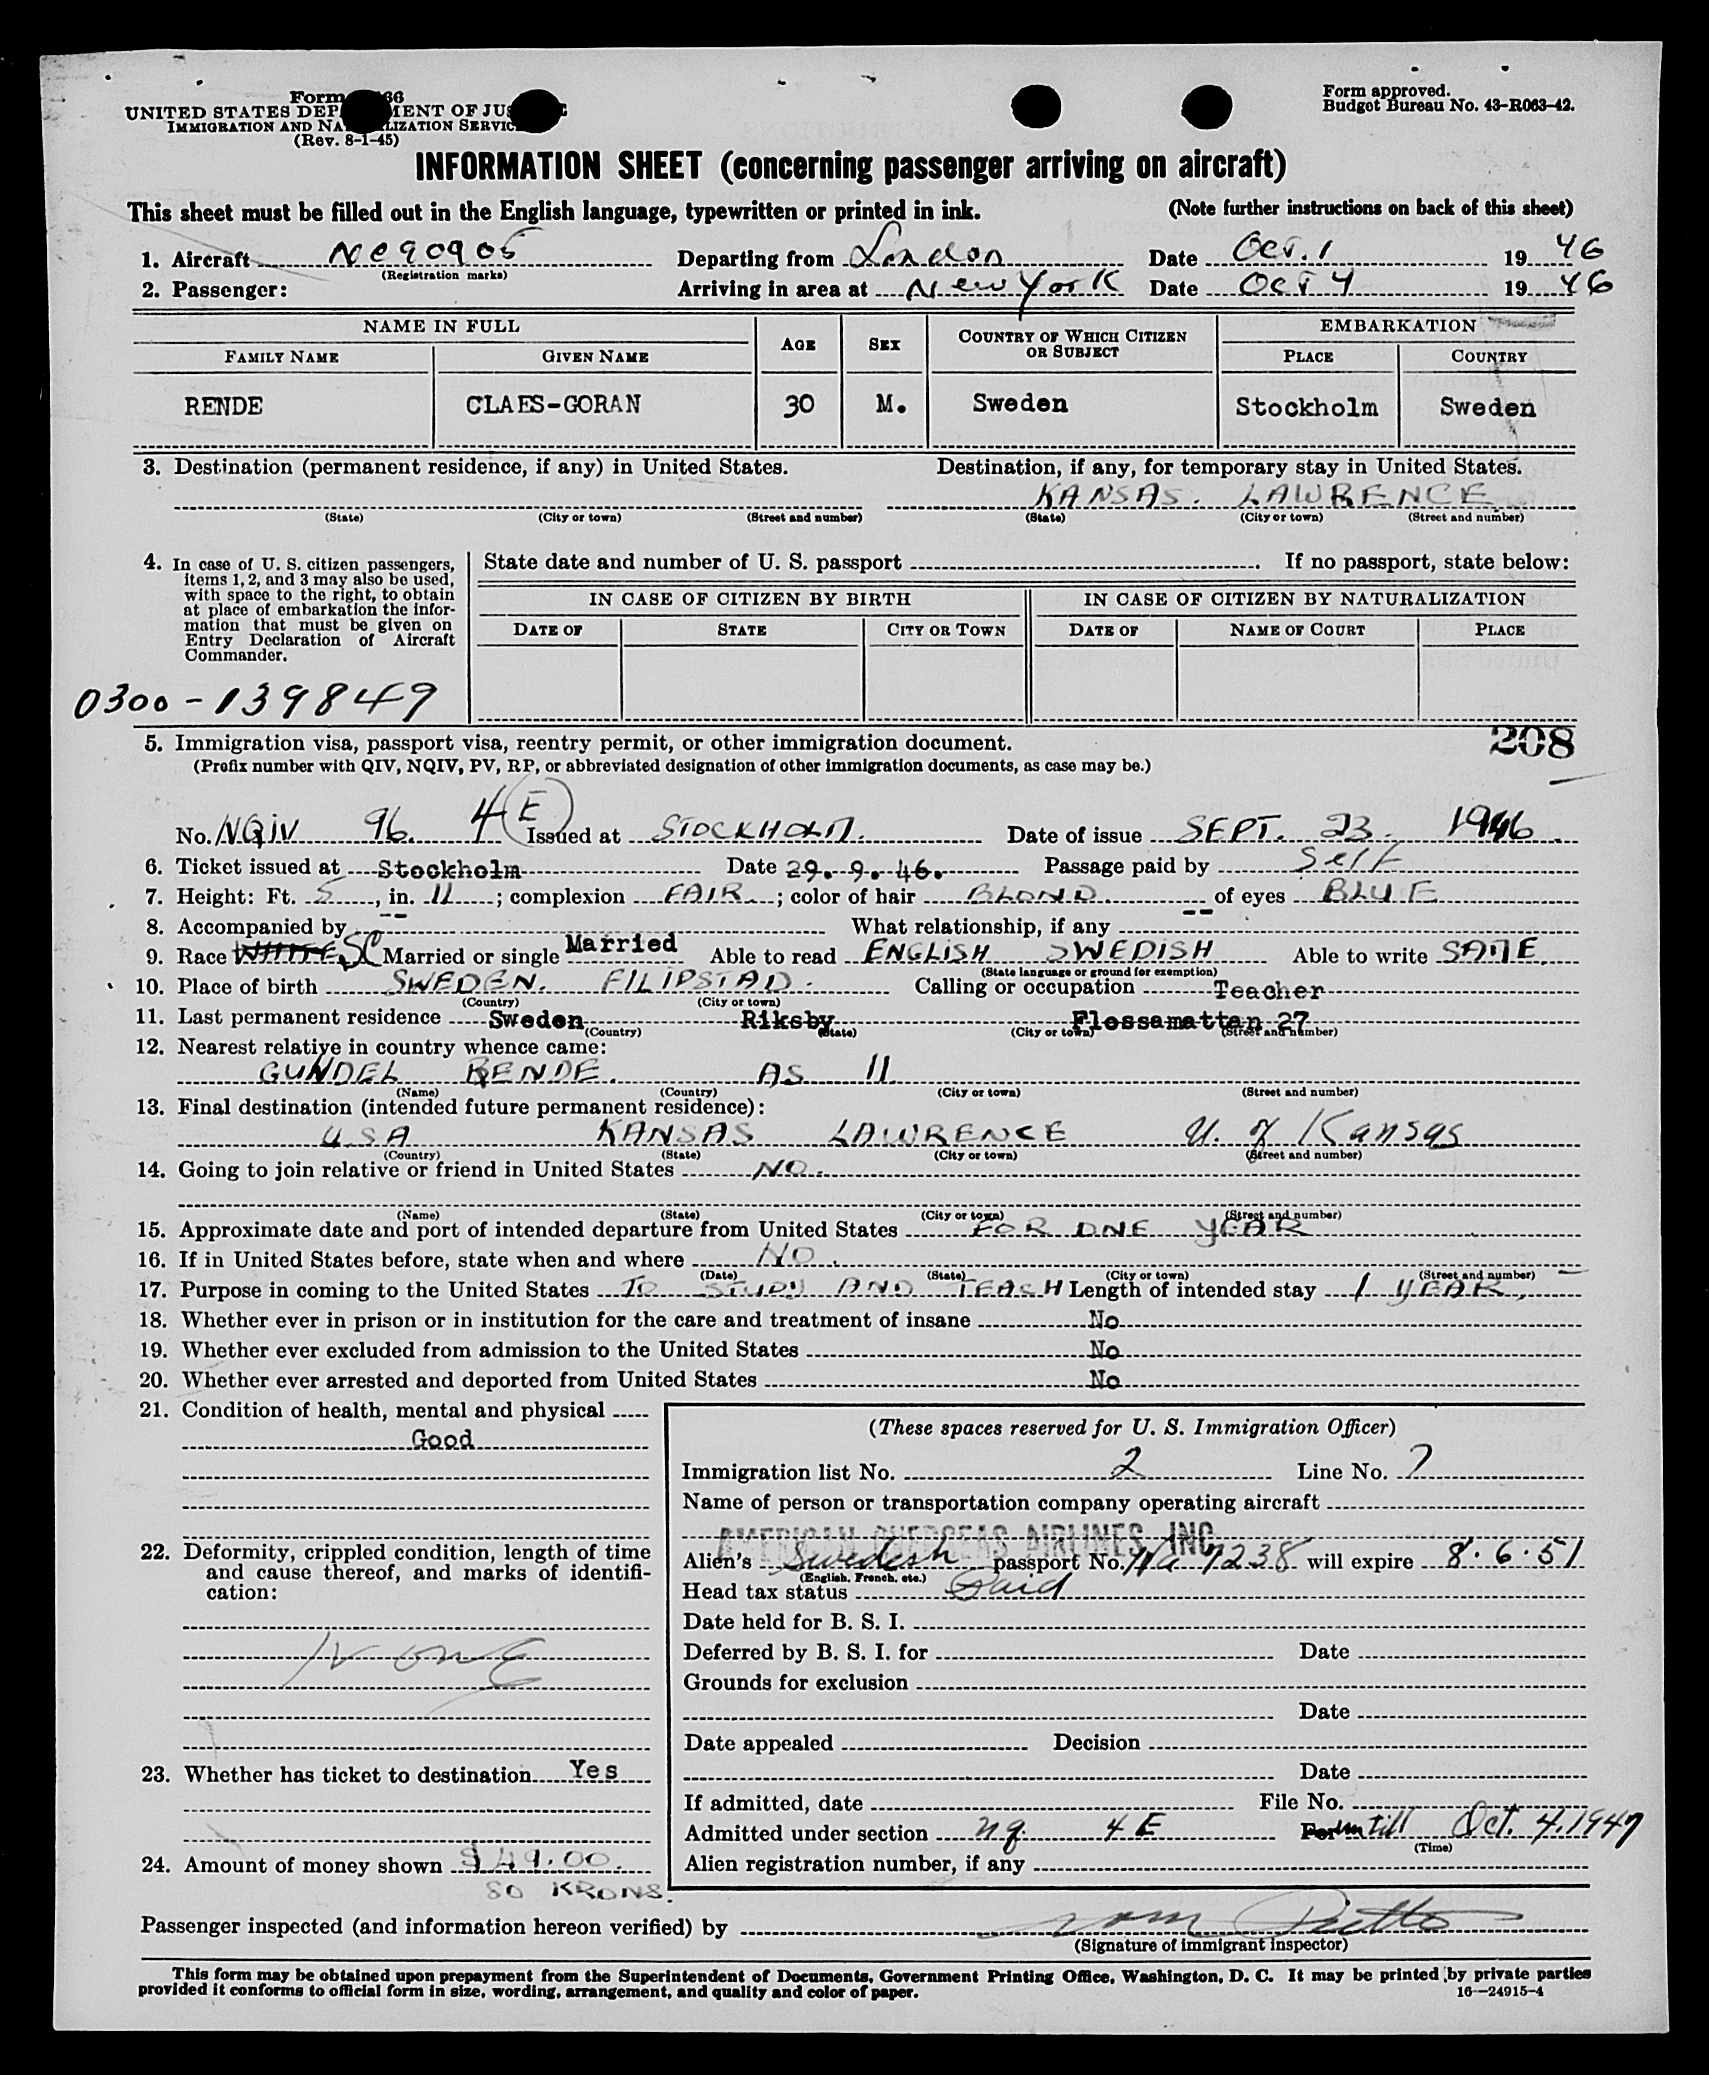 Form 66
UNITED STATES DEPARTMENT OF JUSTICE
IMMIGRATION AND NATURALIZATION SERVICE
(Rev. 8-1-45)
Form approved.
Budget Bureau No. 43-R063-42.
INFORMATION SHEET (concerning passenger arriving on aircraft)
This sheet must be filled out in the English language, typewritten or printed in ink. (Note further instructions on back of this sheet)
1. Aircraft NC90905 Departing from London Date Oct. 1 1946
(Registration marks)
2. Passenger: Arriving in area at New York Date Oct 4 1946
NAME IN FULL AGE SEX COUNTRY OF WHICH CITIZEN OR SUBJECT EMBARKATION
FAMILY NAME GIVEN NAME PLACE COUNTRY
RENDE CLAES-GORAN 30 M. Sweden Stockholm Sweden
3. Destination (permanent residence, if any) in United States. Destination, if any, for temporary stay in United States.
KANSAS. LAWRENCE
(State) (City or town) (Street and number) (State) (City or town) (Street and number)
4. In case of U. S. citizen passengers, items 1, 2, and 3 may also be used, with space to the right, to obtain at place of embarkation the information that must be given on Entry Declaration of Aircraft Commander.
State date and number of U. S. passport . If no passport, state below:
IN CASE OF CITIZEN BY BIRTH IN CASE OF CITIZEN BY NATURALIZATION
DATE OF STATE CITY OR TOWN DATE OF NAME OF COURT PLACE
0300-139849
208
5. Immigration visa, passport visa, reentry permit, or other immigration document.
(Prefix number with QIV, NQIV, PV, RP, or abbreviated designation of other immigration documents, as case may be.)
No. NQIV 96. 4 E Issued at STOCKHOLM. Date of issue SEPT. 23. 1946
6. Ticket issued at Stockholm Date 29. 9. 46. Passage paid by Self
7. Height: Ft. 5, in. 11; complexion FAIR; color of hair BLOND. of eyes BLUE
8. Accompanied by -- What relationship, if any --
9. Race WHITE SC Married or single Married Able to read ENGLISH SWEDISH Able to write SAME
(State language or ground for exemption)
10. Place of birth SWEDEN. FILIPSTAD. Calling or occupation Teacher
(Country) (City or town)
11. Last permanent residence Sweden Riksby Flossamattan 27
(Country) (State) (City or town) (Street and number)
12. Nearest relative in country whence came:
GUNDEL RENDE. AS 11
(Name) (Country) (City or town) (Street and number)
13. Final destination (intended future permanent residence):
USA KANSAS LAWRENCE U. of Kansas
(Country) (State) (City or town) (Street and number)
14. Going to join relative or friend in United States NO.
(Name) (State) (City or town) (Street and number)
15. Approximate date and port of intended departure from United States FOR ONE YEAR
16. If in United States before, state when and where NO.
(Date) (State) (City or town) (Street and number)
17. Purpose in coming to the United States TO STUDY AND TEACH Length of intended stay 1 YEAR,
18. Whether ever in prison or in institution for the care and treatment of insane No
19. Whether ever excluded from admission to the United States No
20. Whether ever arrested and deported from United States No
21. Condition of health, mental and physical
Good
22. Deformity, crippled condition, length of time and cause thereof, and marks of identification:
None
23. Whether has ticket to destination Yes
24. Amount of money shown $49.00.
80 KRONS.
(These spaces reserved for U. S. Immigration Officer)
Immigration list No. 2 Line No. 7
Name of person or transportation company operating aircraft
AMERICAN OVERSEAS AIRLINES, INC
Alien's Swedish passport No. 7238 will expire 8.6.51
(English, French, etc.)
Head tax status Paid
Date held for B. S. I.
Deferred by B. S. I. for Date
Grounds for exclusion
Date
Date appealed Decision
Date
If admitted, date File No.
Admitted under section nq. 4E For until Oct. 4, 1947
(Time)
Alien registration number, if any
Passenger inspected (and information hereon verified) by
(Signature of immigrant inspector)
This form may be obtained upon prepayment from the Superintendent of Documents, Government Printing Office, Washington, D. C. It may be printed by private parties
provided it conforms to official form in size, wording, arrangement, and quality and color of paper. 16—24915-4